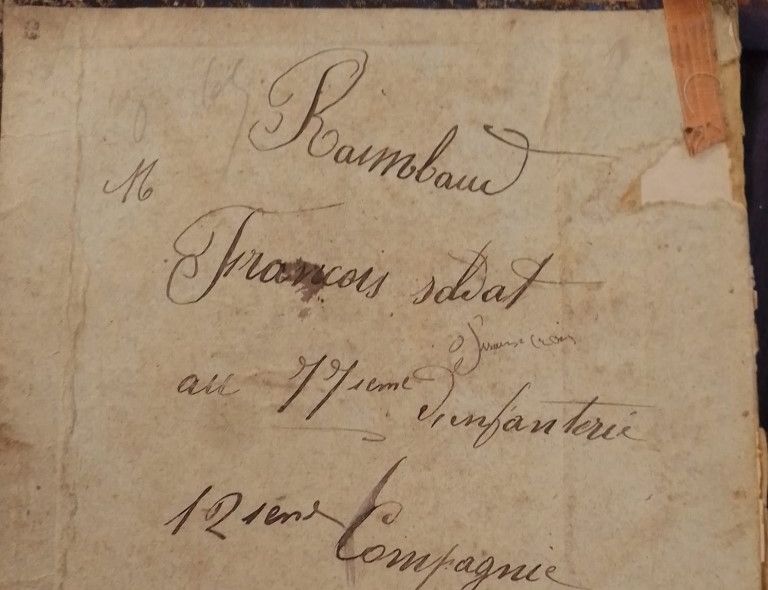 Raimbaud
M
François soldat
au 77ieme D'infanterie
12ieme Compagnie